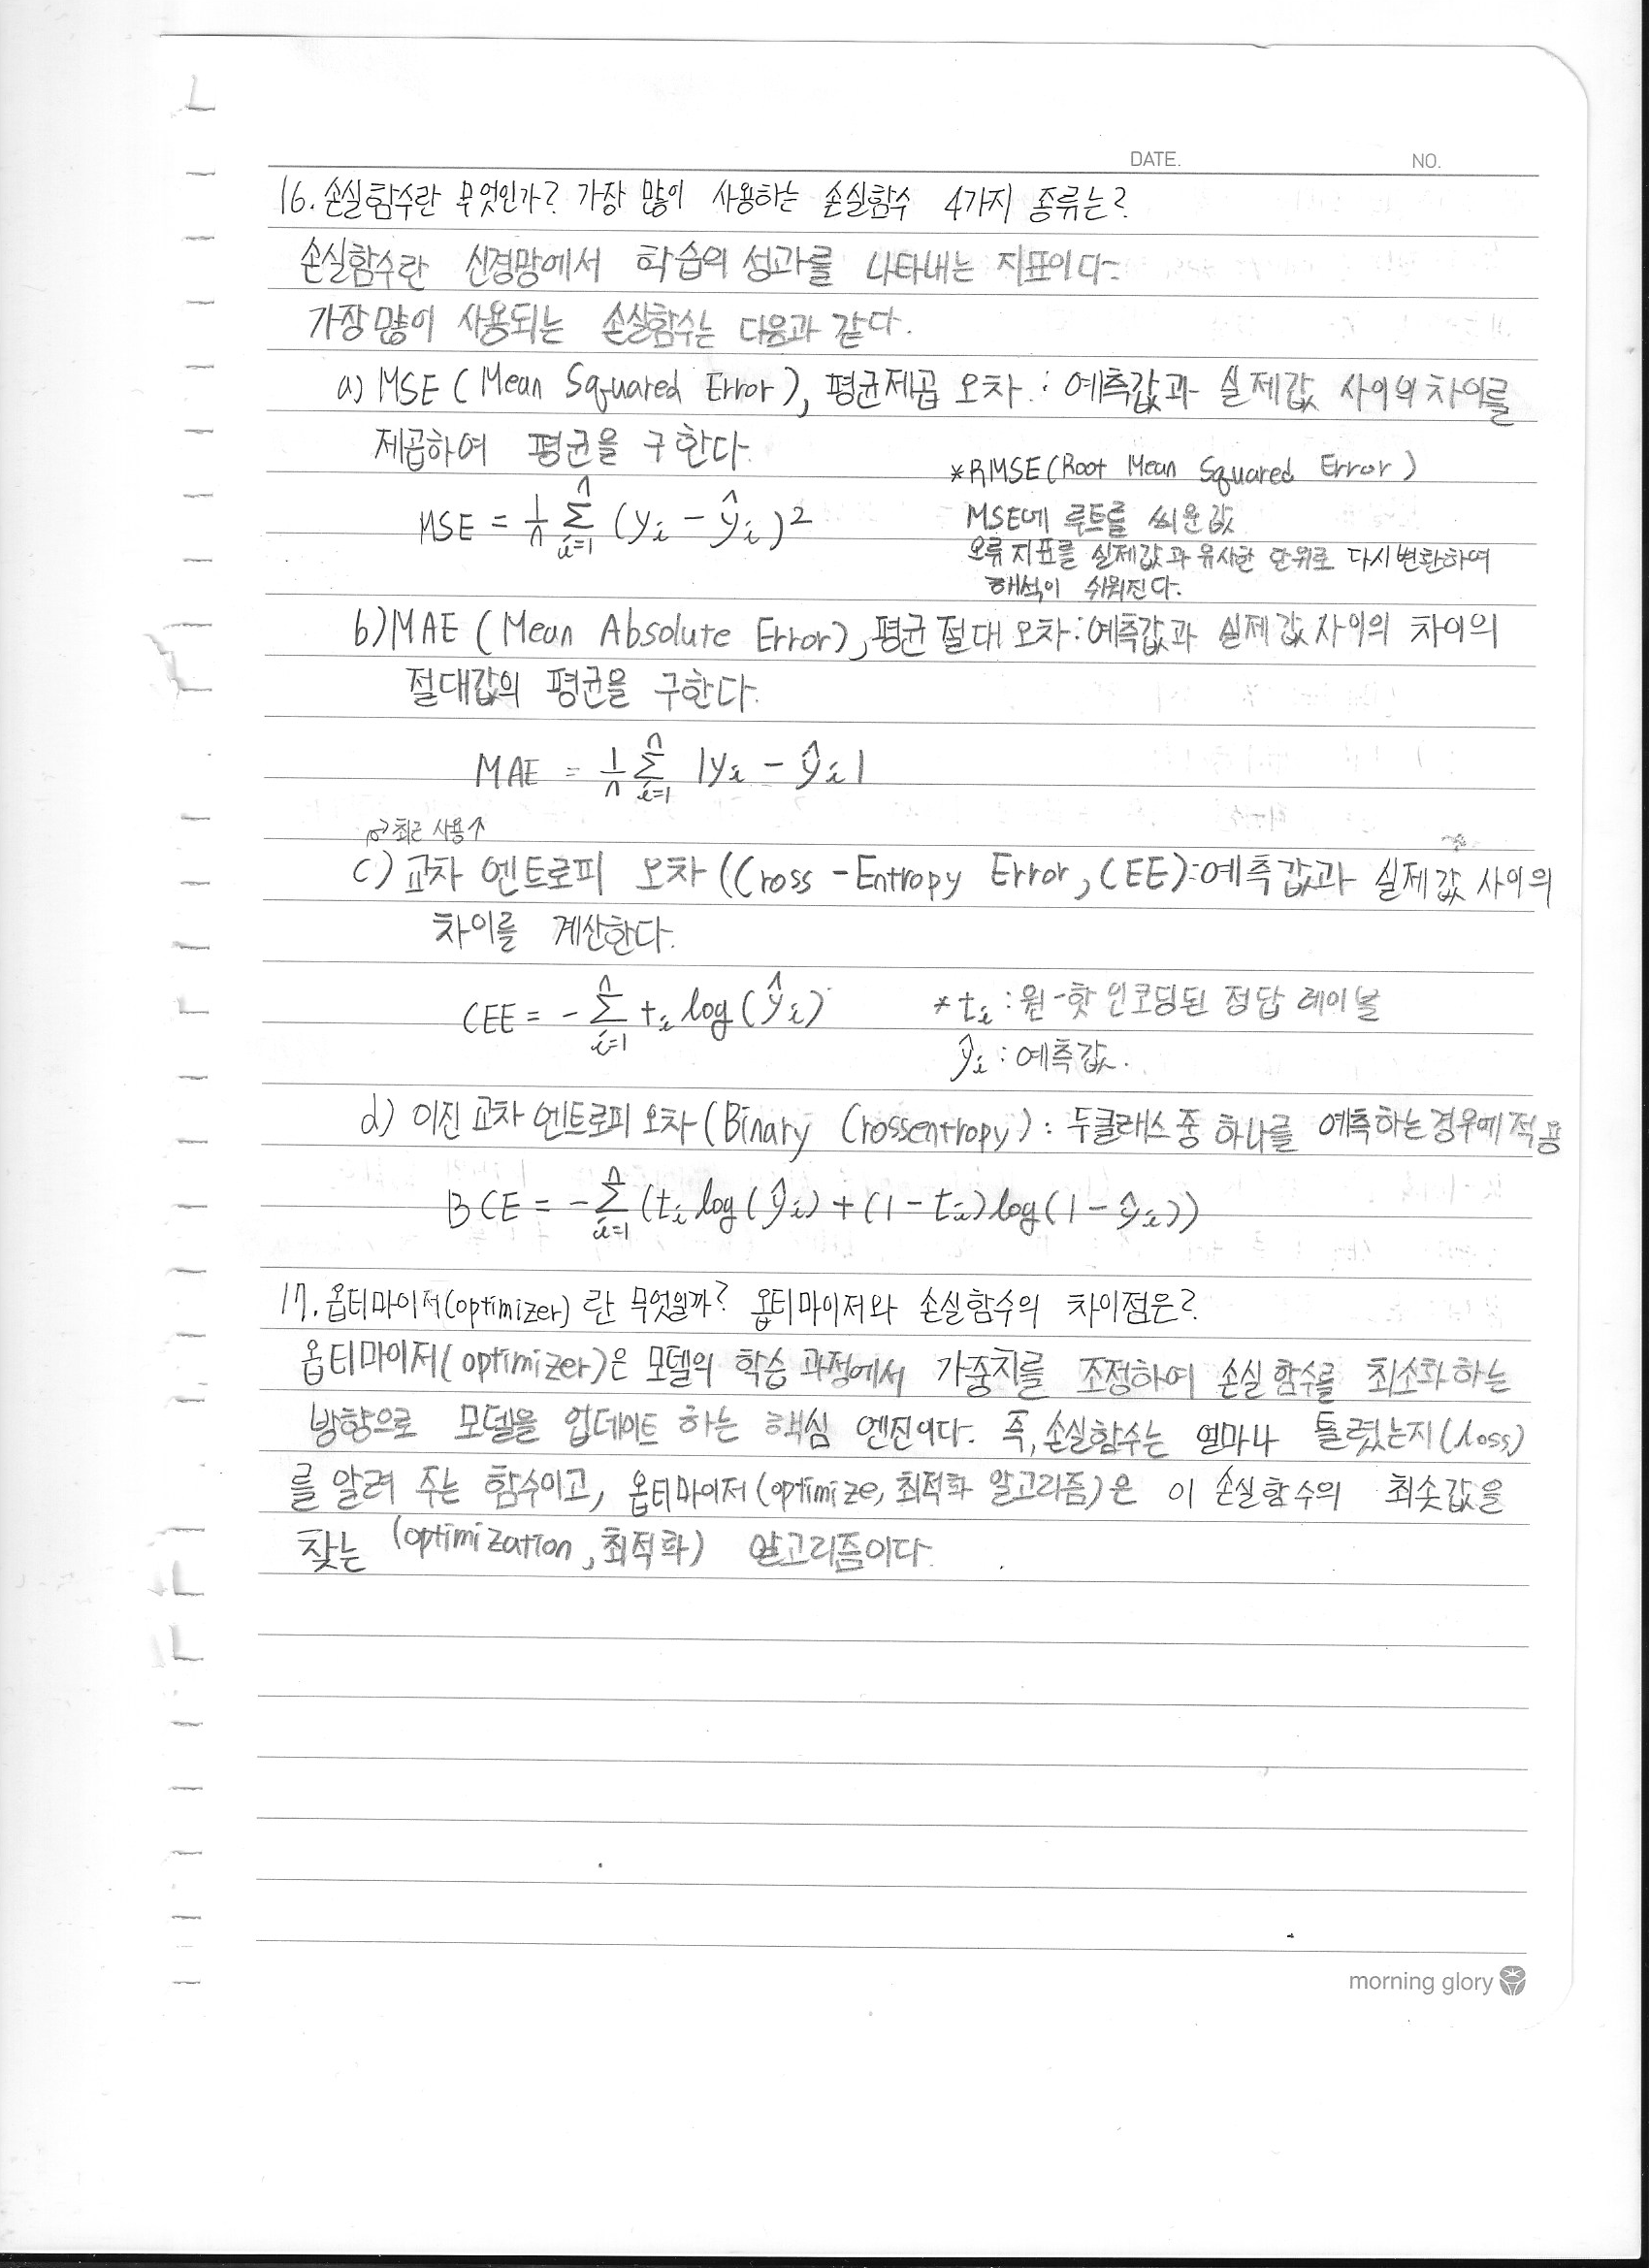 DATE. NO.
16. 손실함수란 무엇인가? 가장 많이 사용하는 손실함수 4가지 종류는?
손실함수란 신경망에서 학습의 성과를 나타내는 지표이다.
가장 많이 사용되는 손실함수는 다음과 같다.
a) MSE (Mean Squared Error), 평균제곱 오차 : 예측값과 실제값 사이의 차이를
제곱하여 평균을 구한다.
MSE = 1/n Σ_{i=1}^{n} (y_i - ŷ_i)²
*RMSE (Root Mean Squared Error)
MSE에 루트를 씌운 값
오류 지표를 실제값과 유사한 단위로 다시 변환하여
해석이 쉬워진다.
b) MAE (Mean Absolute Error), 평균 절대 오차 : 예측값과 실제값 사이의 차이의
절대값의 평균을 구한다.
MAE = 1/n Σ_{i=1}^{n} |y_i - ŷ_i|
최근 사용↑
c) 교차 엔트로피 오차 (Cross-Entropy Error, CEE) : 예측값과 실제값 사이의
차이를 계산한다.
CEE = - Σ_{i=1}^{n} t_i log(ŷ_i)
*t_i : 원-핫 인코딩된 정답 레이블
ŷ_i : 예측값.
d) 이진 교차 엔트로피 오차 (Binary Crossentropy) : 두 클래스 중 하나를 예측하는 경우에 적용
BCE = - Σ_{i=1}^{n} (t_i log(ŷ_i) + (1 - t_i) log(1 - ŷ_i))
17. 옵티마이저(optimizer) 란 무엇일까? 옵티마이저와 손실함수의 차이점은?
옵티마이저(optimizer)은 모델의 학습 과정에서 가중치를 조정하여 손실 함수를 최소화 하는
방향으로 모델을 업데이트 하는 핵심 엔진이다. 즉, 손실함수는 얼마나 틀렸는지(loss)
를 알려 주는 함수이고, 옵티마이저(optimize, 최적화 알고리즘)은 이 손실함수의 최솟값을
찾는 (optimization, 최적화) 알고리즘이다.
morning glory